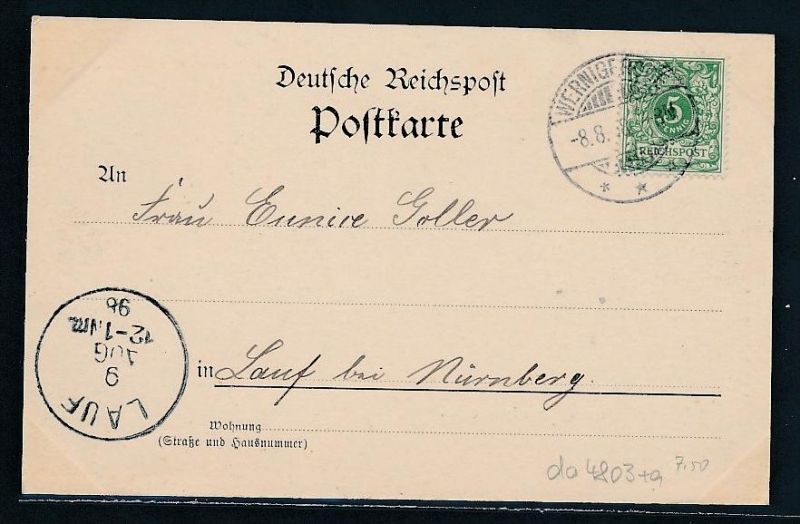 Deutsche Reichspost
Postkarte
WERNIGERODE
-8.8.
5
PFENNIG
REICHSPOST
An
Frau Eunice Goller
in Lauf bei Nürnberg.
Wohnung
(Straße und Hausnummer)
LAUF
9
AUG
12-1.Nm.
96
da 4803+a 7,50